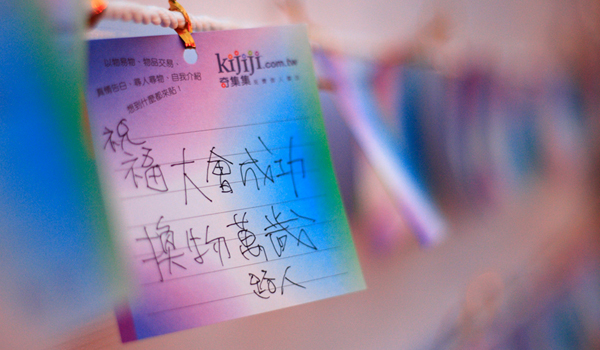 以物易物、物品交易、
真情告白、尋人尋物、自我介紹
想到什麼都來貼！
kijiji.com.tw
奇集集
祝
福大會成功
換物萬歲
路人